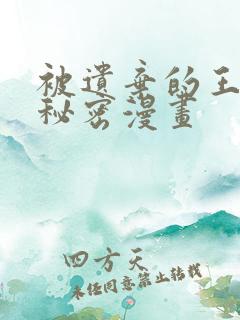 被遺棄的王
秘密漫畫
四方天
未经同意禁止转载